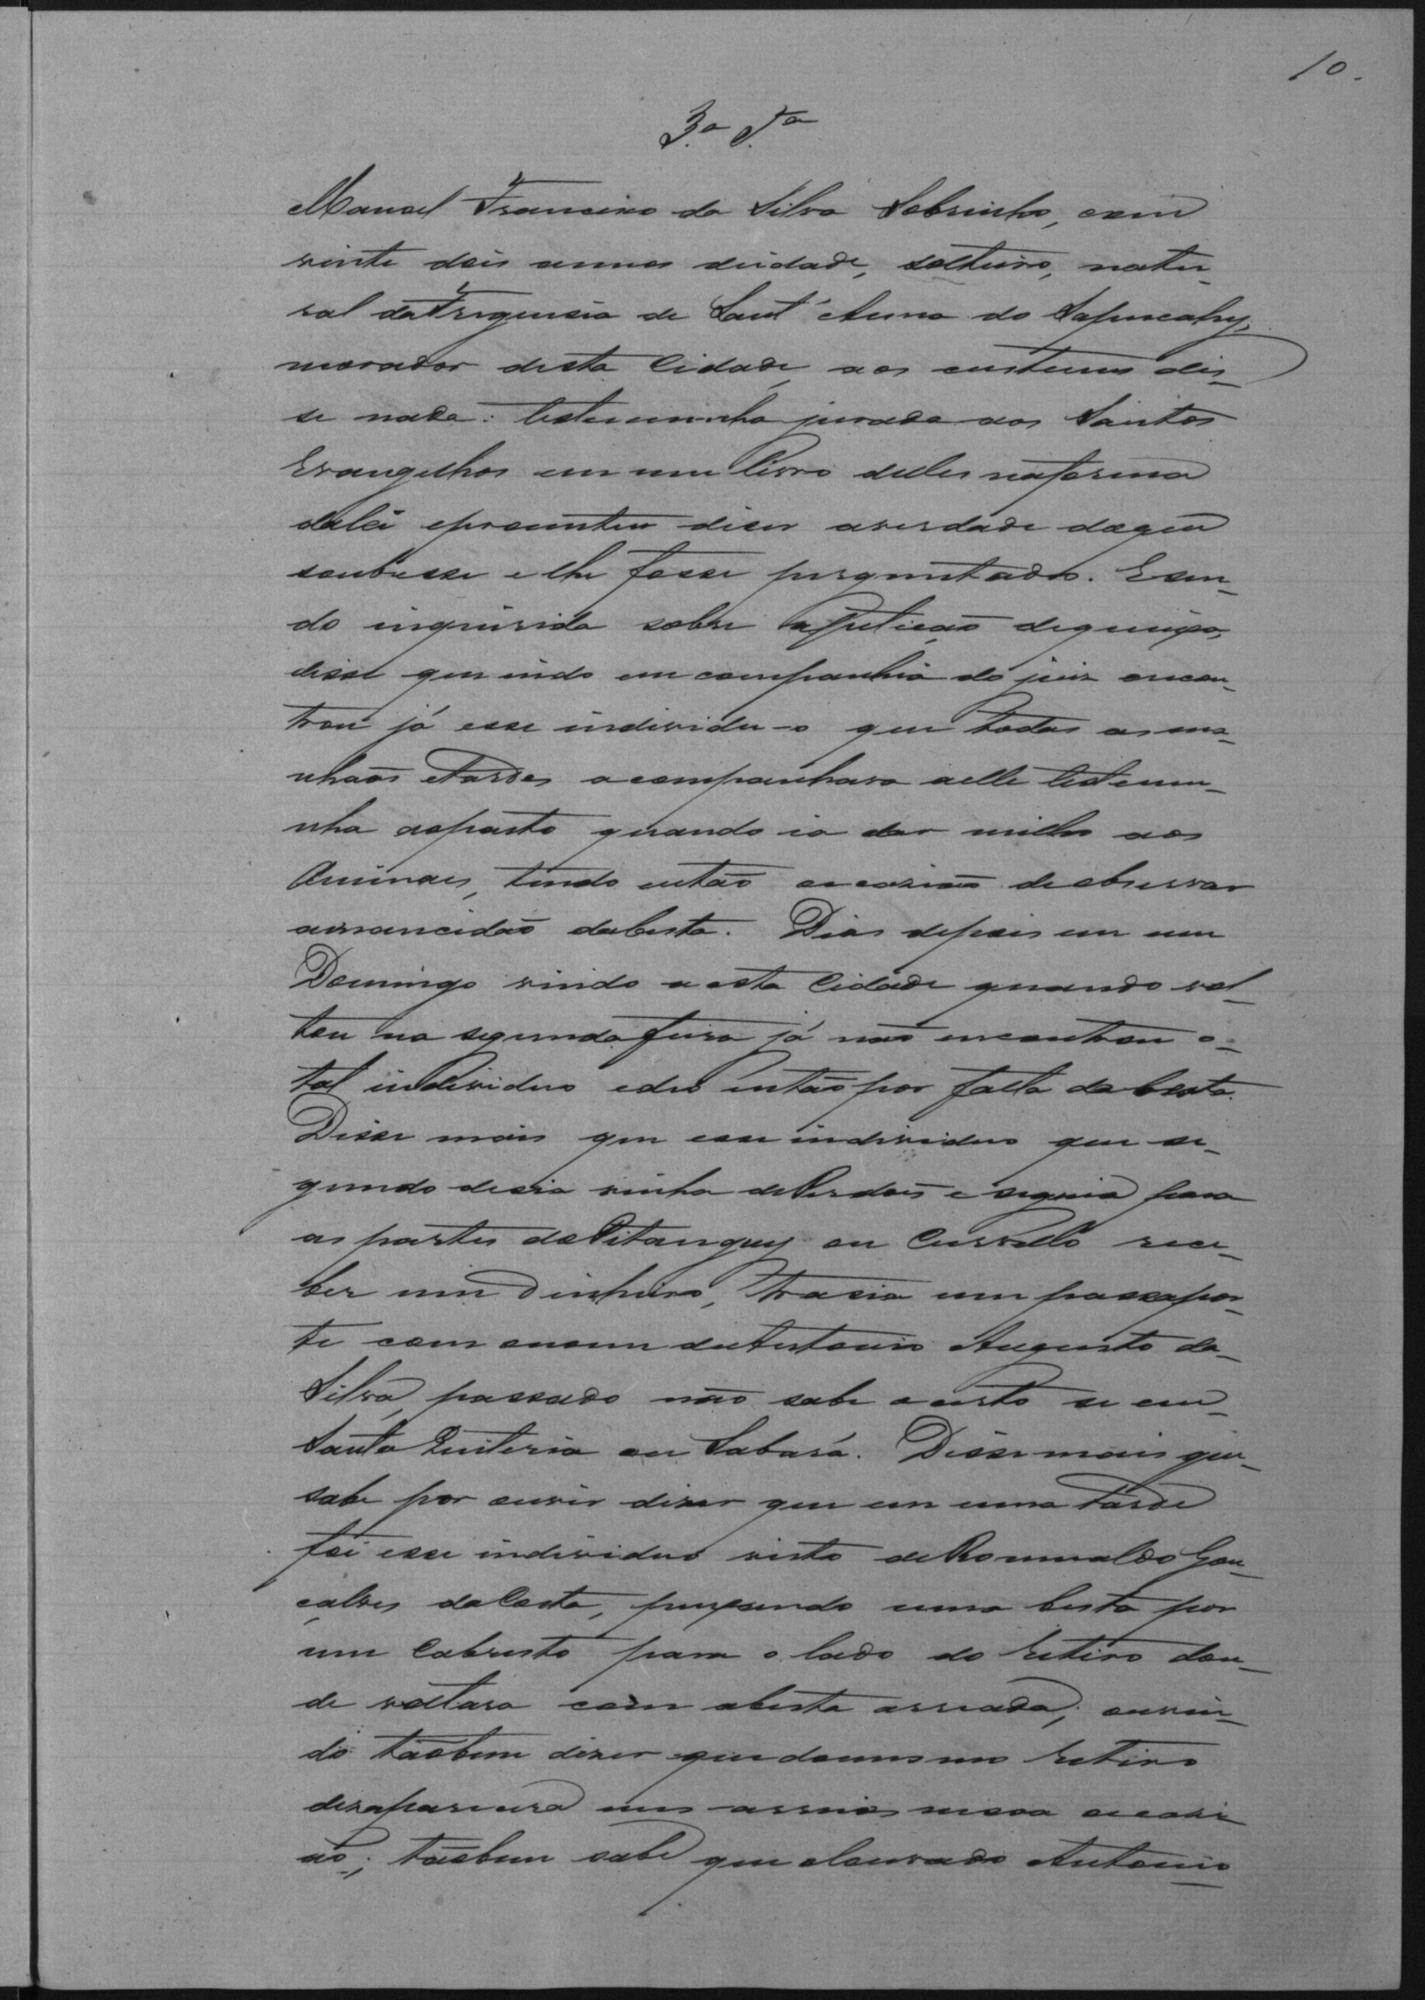 10.
3.ª T.ª
Manoel Francisco da Silva Sobrinho, com
vinte dois annos deidade, solteiro, natu-
ral da Freguesia de Sant'Anna do Sapucahy,
morador desta Cidade, aos custumes dis-
se nada: testemunha jurada aos Santos
Evangelhos em um livro delles naforma
dalei eprometteu diser averdade doque
soubesse e lhe fosse perguntado. Esen-
do inquirida sobre apetição dequeixa,
disse que indo em companhia do juiz encon-
trou já esse individu-o que todas as ma-
nhaãs etardes acompanhava aelle testemu-
nha aopasto quando ia dar milho aos
Animaes, tendo então occasião deobservar
amancidão dabesta. Dias depois em um
Domingo vindo a esta Cidade quando vol-
tou na segunda feira já não encontrou o-
tal individuo edeo então por falta da besta.
Disse mais que esse individuo que se-
gundo desia vinha dePerdões e seguia para
as partes dePitanguy ou Curvello rece-
ber um Dinheiro, trasia um passapor-
te com onome deAntonio Augusto da-
Silva, passado não sabe aocerto se em-
Santa Quiteria ou Sabará. Disse mais que-
sabe por ouvir dizer que em uma tarde
foi esse individuo visto deRomualdo Gon-
çalves daCosta, puxando uma besta por
um Cabresto para o lado do Retiro don-
de voltara com abesta arreada; ouvin-
do tãobem dizer que domesmo Retiro
desaparecera uns arreios nessa occasi
ão; tãobem sabe que olouvado Antonio